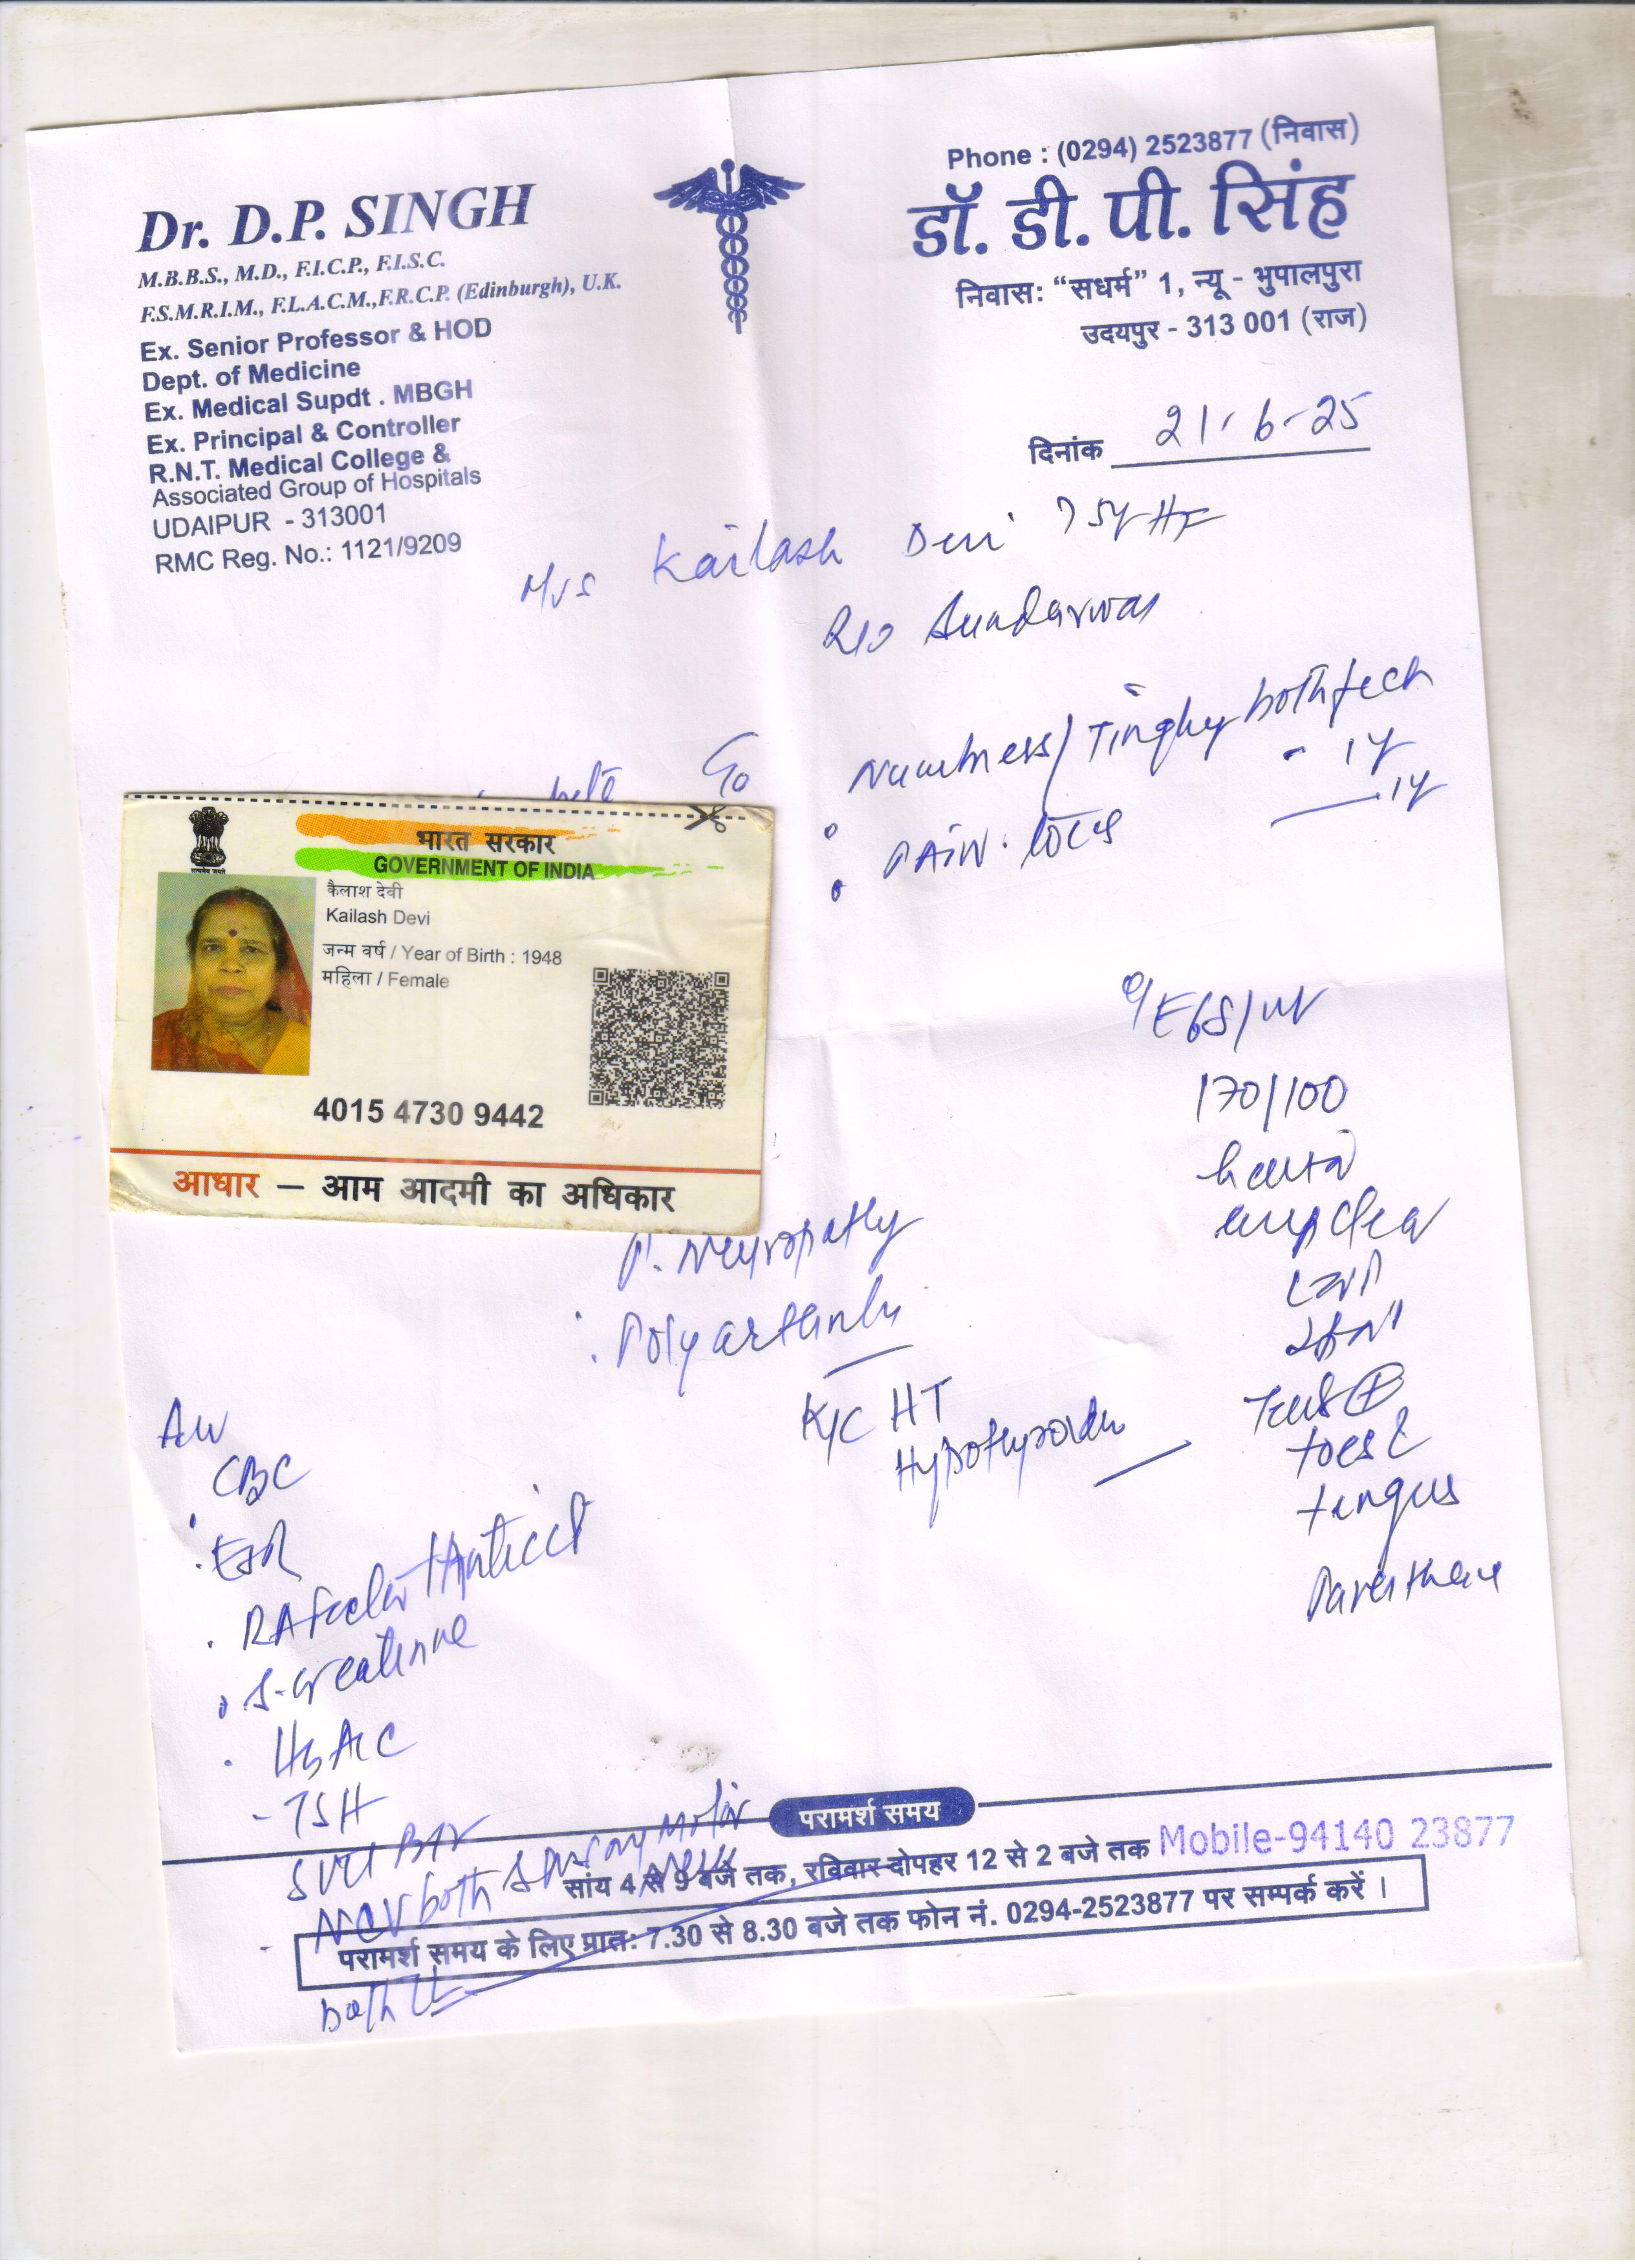 Phone : (0294) 2523877 (निवास)
Dr. D.P. SINGH
डॉ. डी. पी. सिंह
M.B.B.S., M.D., F.I.C.P., F.I.S.C.
F.S.M.R.I.M., F.L.A.C.M.,F.R.C.P. (Edinburgh), U.K.
निवास: “सधर्म” 1, न्यू - भुपालपुरा
उदयपुर - 313 001 (राज)
Ex. Senior Professor & HOD
Dept. of Medicine
Ex. Medical Supdt . MBGH
Ex. Principal & Controller
R.N.T. Medical College &
Associated Group of Hospitals
UDAIPUR - 313001
RMC Reg. No.: 1121/9209
दिनांक 21-6-25
Mrs Kailash Devi
R/o Sundarwas
Numbness/Tingling both feet
- 1y
PAIN 1y
भारत सरकार
GOVERNMENT OF INDIA
कैलाश देवी
Kailash Devi
जन्म वर्ष / Year of Birth : 1948
महिला / Female
4015 4730 9442
आधार – आम आदमी का अधिकार
170/100
clear
toes
fungus
P. Neuropathy
Polyarthritis
K/C HT
Hypothyroidism
CBC
ESR
RA factor
S. creatinine
HbA1C
TSH
NCV both
both
परामर्श समय
सांय 4 से 9 बजे तक, रविवार दोपहर 12 से 2 बजे तक Mobile-94140 23877
परामर्श समय के लिए प्रात: 7.30 से 8.30 बजे तक फोन नं. 0294-2523877 पर सम्पर्क करें ।